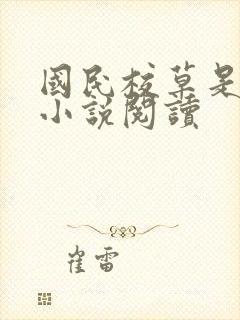 國民校草是
小說閱讀
崔雷